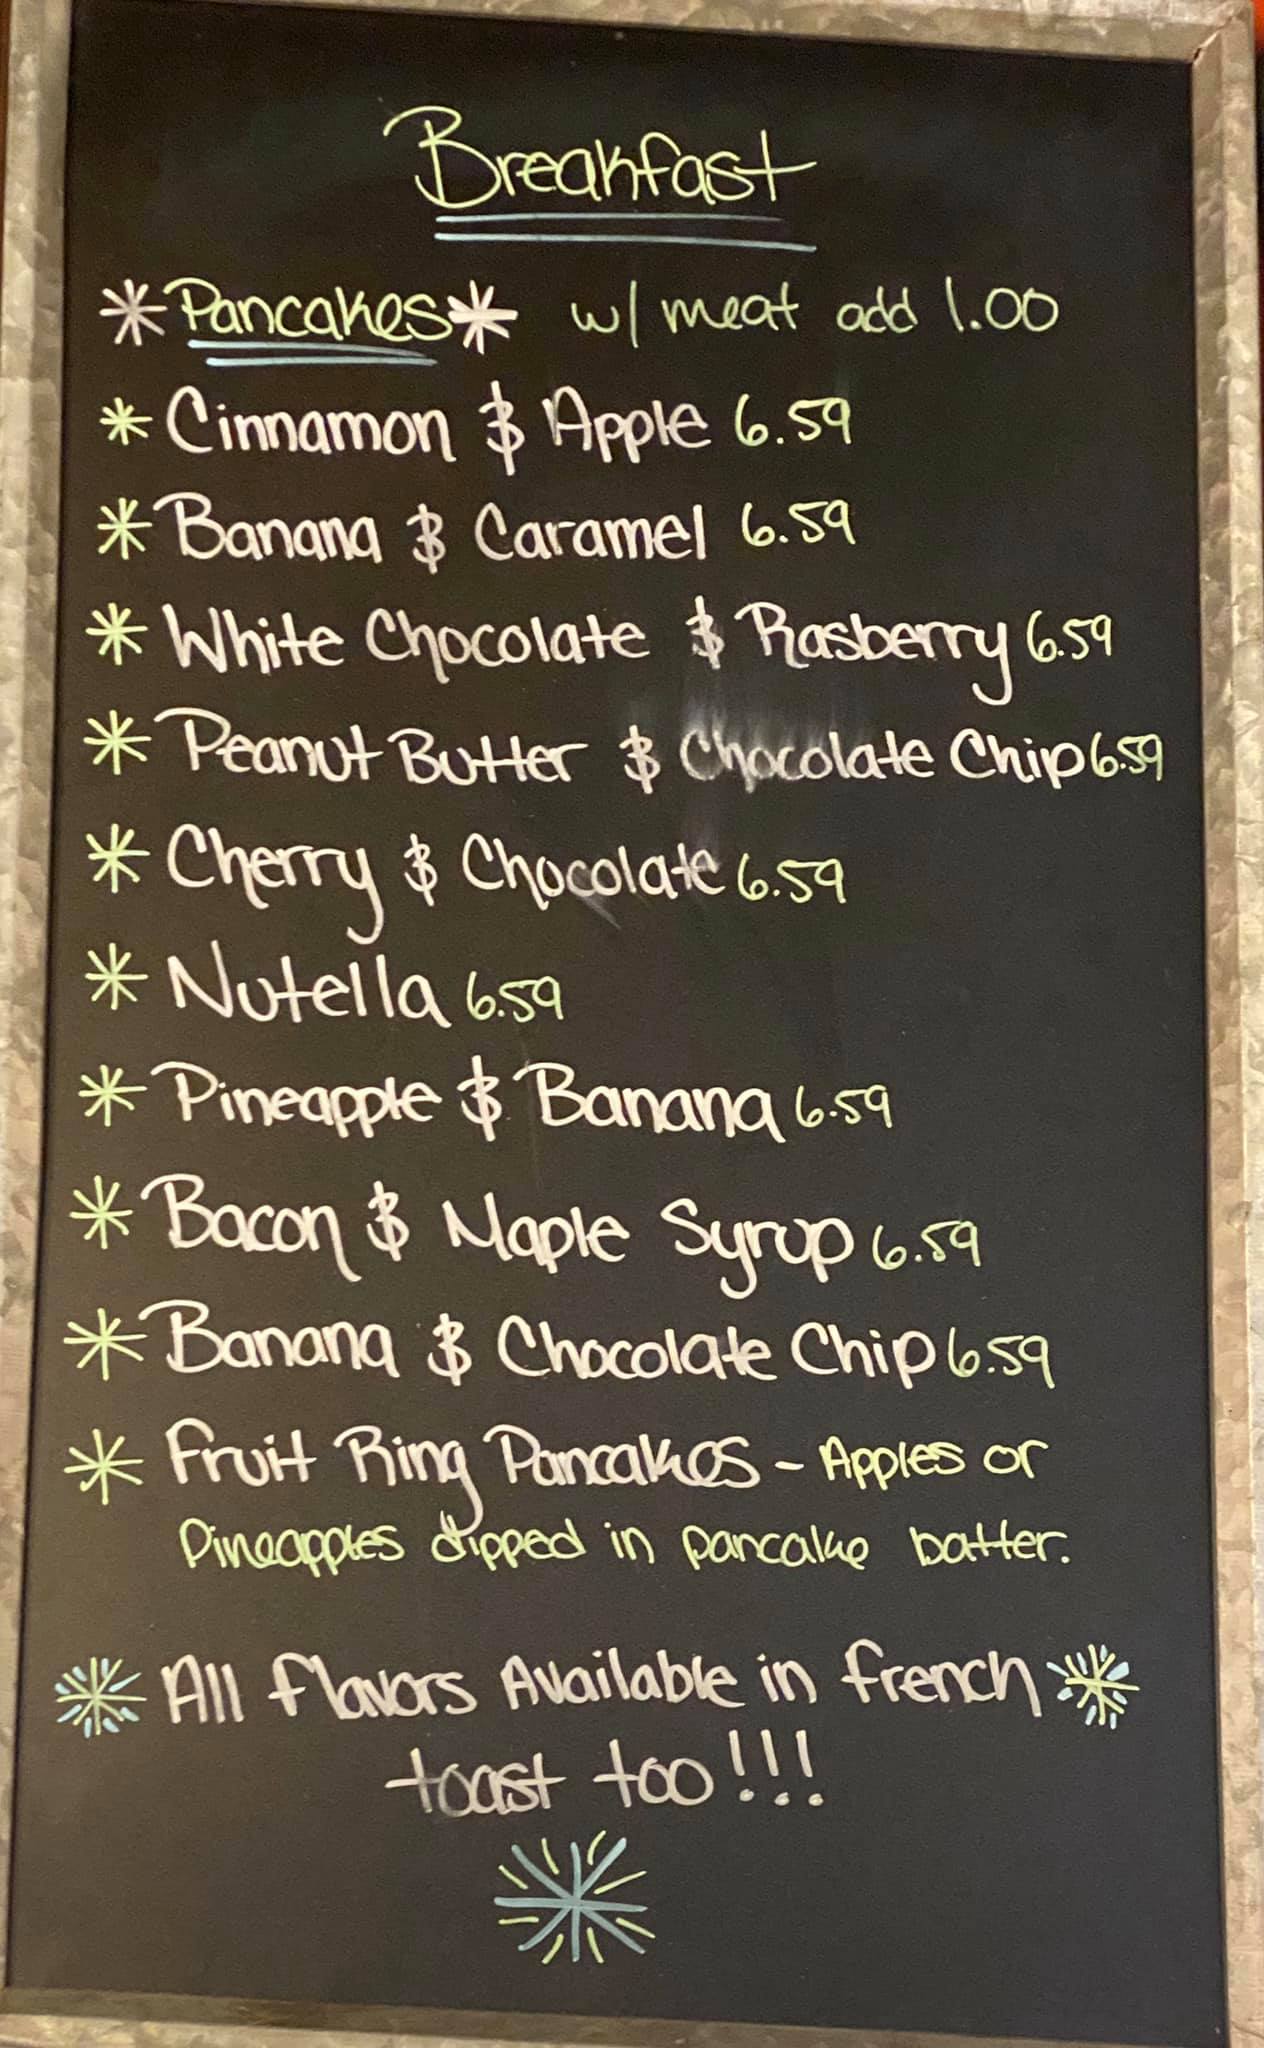 Breakfast
*Pancakes* w/ meat add 1.00
* Cinnamon & Apple 6.59
* Banana & Caramel 6.59
* White Chocolate & Rasberry 6.59
* Peanut Butter & Chocolate Chip 6.59
* Cherry & Chocolate 6.59
* Nutella 6.59
* Pineapple & Banana 6.59
* Bacon & Maple Syrup 6.59
* Banana & Chocolate Chip 6.59
* Fruit Ring Pancakes - Apples or
Pineapples dipped in pancake batter.
* All flavors Available in french *
toast too!!!